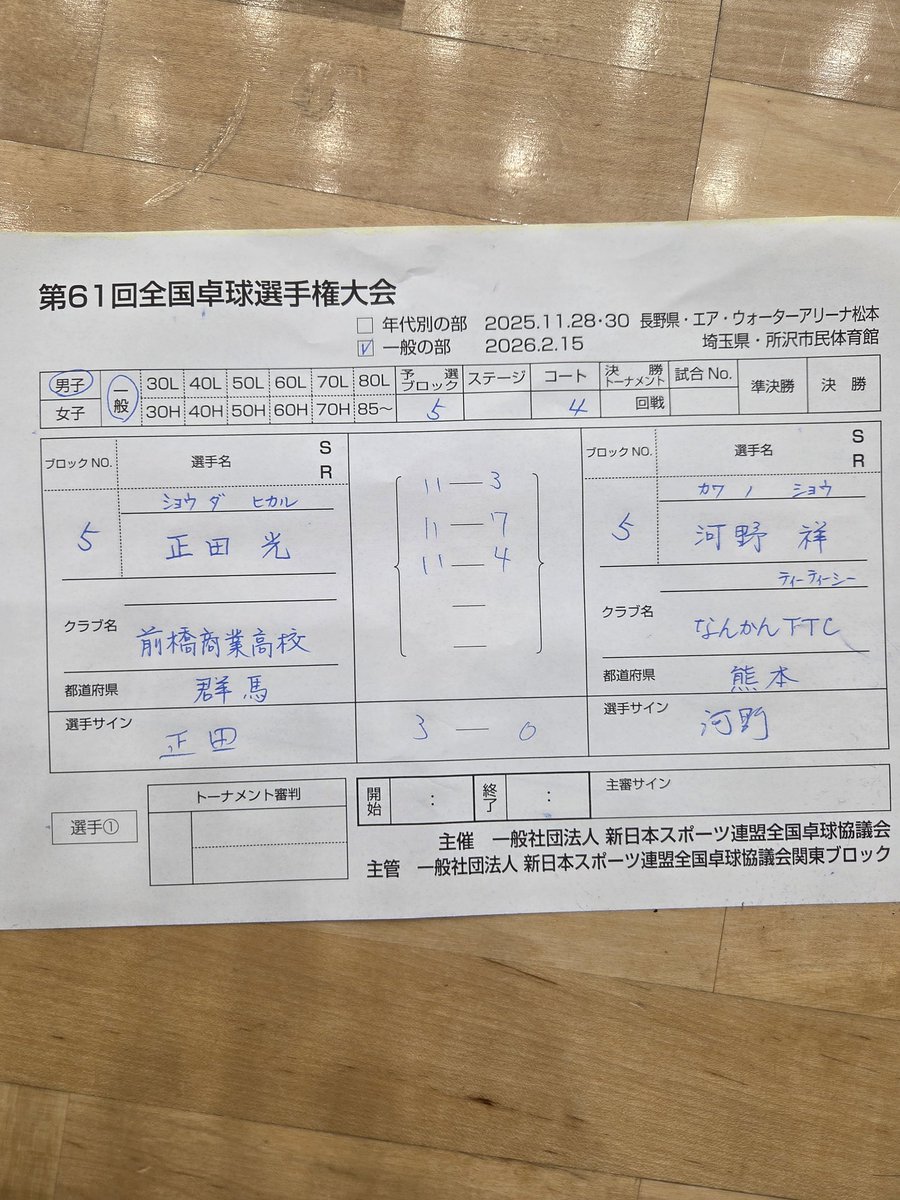 第61回全国卓球選手権大会
年代別の部 2025.11.28・30 長野県・エア・ウォーターアリーナ松本
一般の部 2026.2.15 埼玉県・所沢市民体育館
男子 一般 30L 40L 50L 60L 70L 80L 予選ブロック ステージ コート 決勝トーナメント 試合No. 準決勝 決勝
女子 30H 40H 50H 60H 70H 85〜 5 4 回戦
ブロックNO. 選手名 S R
ショウダ ヒカル
5 正田 光
クラブ名 前橋商業高校
都道府県 群馬
選手サイン 正田
11 — 3
11 — 7
11 — 4
—
—
3 — 0
ブロックNO. 選手名 S R
カワノ ショウ
5 河野 祥
ティーティーシー
クラブ名 なんかんTTC
都道府県 熊本
選手サイン 河野
選手①
トーナメント審判
開始 : 終了 : 主審サイン
主催 一般社団法人 新日本スポーツ連盟全国卓球協議会
主管 一般社団法人 新日本スポーツ連盟全国卓球協議会関東ブロック